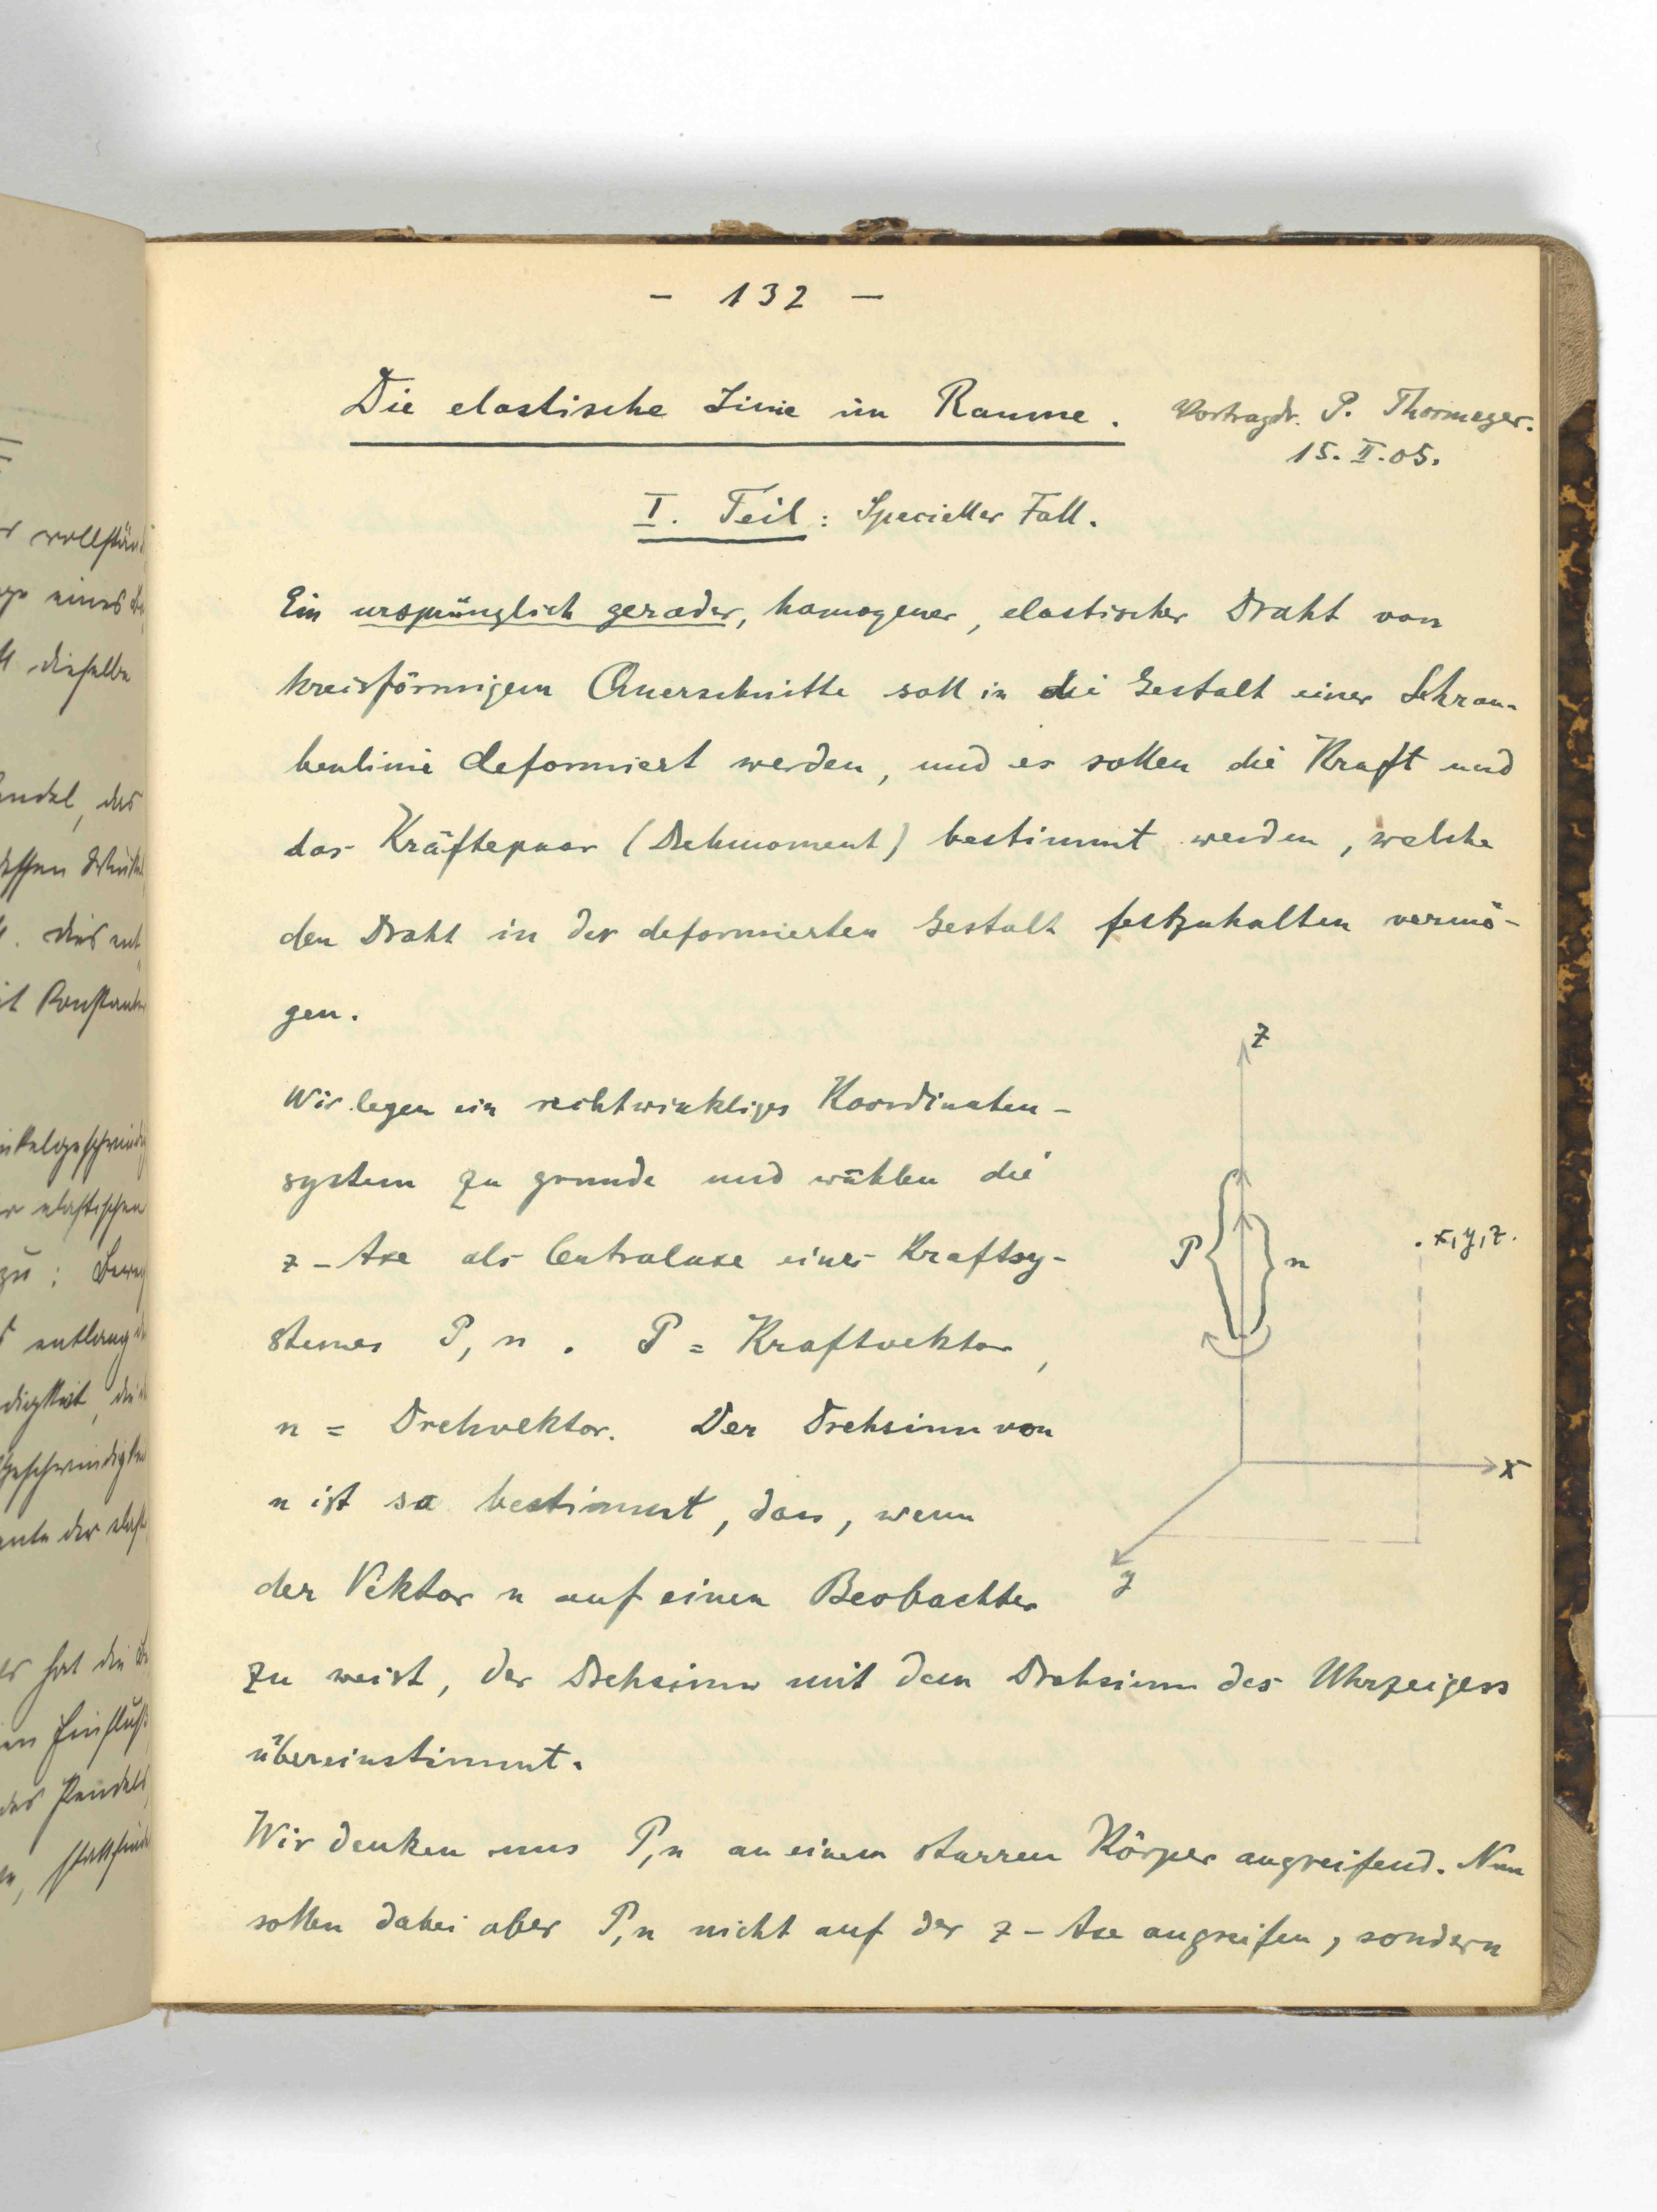 - 132 -
Die elastische Linie im Raume.
Vortragdr. P. Thormeyer.
15. II. 05.
I. Teil: Specieller Fall.
Ein ursprünglich gerader, homogener, elastischer Draht von
kreisförmigem Querschnitte soll in die Gestalt einer Schrau-
benlinie deformiert werden, und es sollen die Kraft und
das Kräftepaar (Drehmoment) bestimmt werden, welche
den Draht in der deformierten Gestalt festzuhalten vermö-
gen.
Wir legen ein rechtwinkliges Koordinaten-
system zu grunde und wählen die
z-Axe als Centralaxe eines Kraftsy-
stemes P, n. P = Kraftvektor,
n = Drehvektor. Der Drehsinn von
n ist so bestimmt, dass, wenn
der Vektor n auf einen Beobachter
zu weist, der Drehsinn mit dem Drehsinn des Uhrzeigers
übereinstimmt.
Wir denken uns P,n an einem starren Körper angreifend. Nun
sollen dabei aber P,n nicht auf der z-Axe angreifen, sondern
z
P
n
x,y,z.
x
y
vollstän
eines
dieselbe
das
entlang
hat die